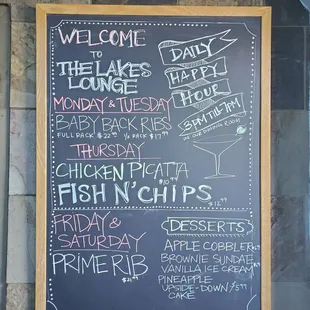 WELCOME
TO
THE LAKES
LOUNGE
MONDAY & TUESDAY
BABY BACK RIBS
FULL PACK $22.99 ½ PACK $17.99
THURSDAY
CHICKEN PICATTA
$10.99
FISH N' CHIPS
$12.99
FRIDAY &
SATURDAY
PRIME RIB
DAILY
HAPPY
HOUR
3PM TIL 7PM
IN OUR DINING ROOM
DESSERTS
APPLE COBBLER
BROWNIE SUNDAE
VANILLA ICE CREAM
PINEAPPLE
UPSIDE-DOWN
CAKE